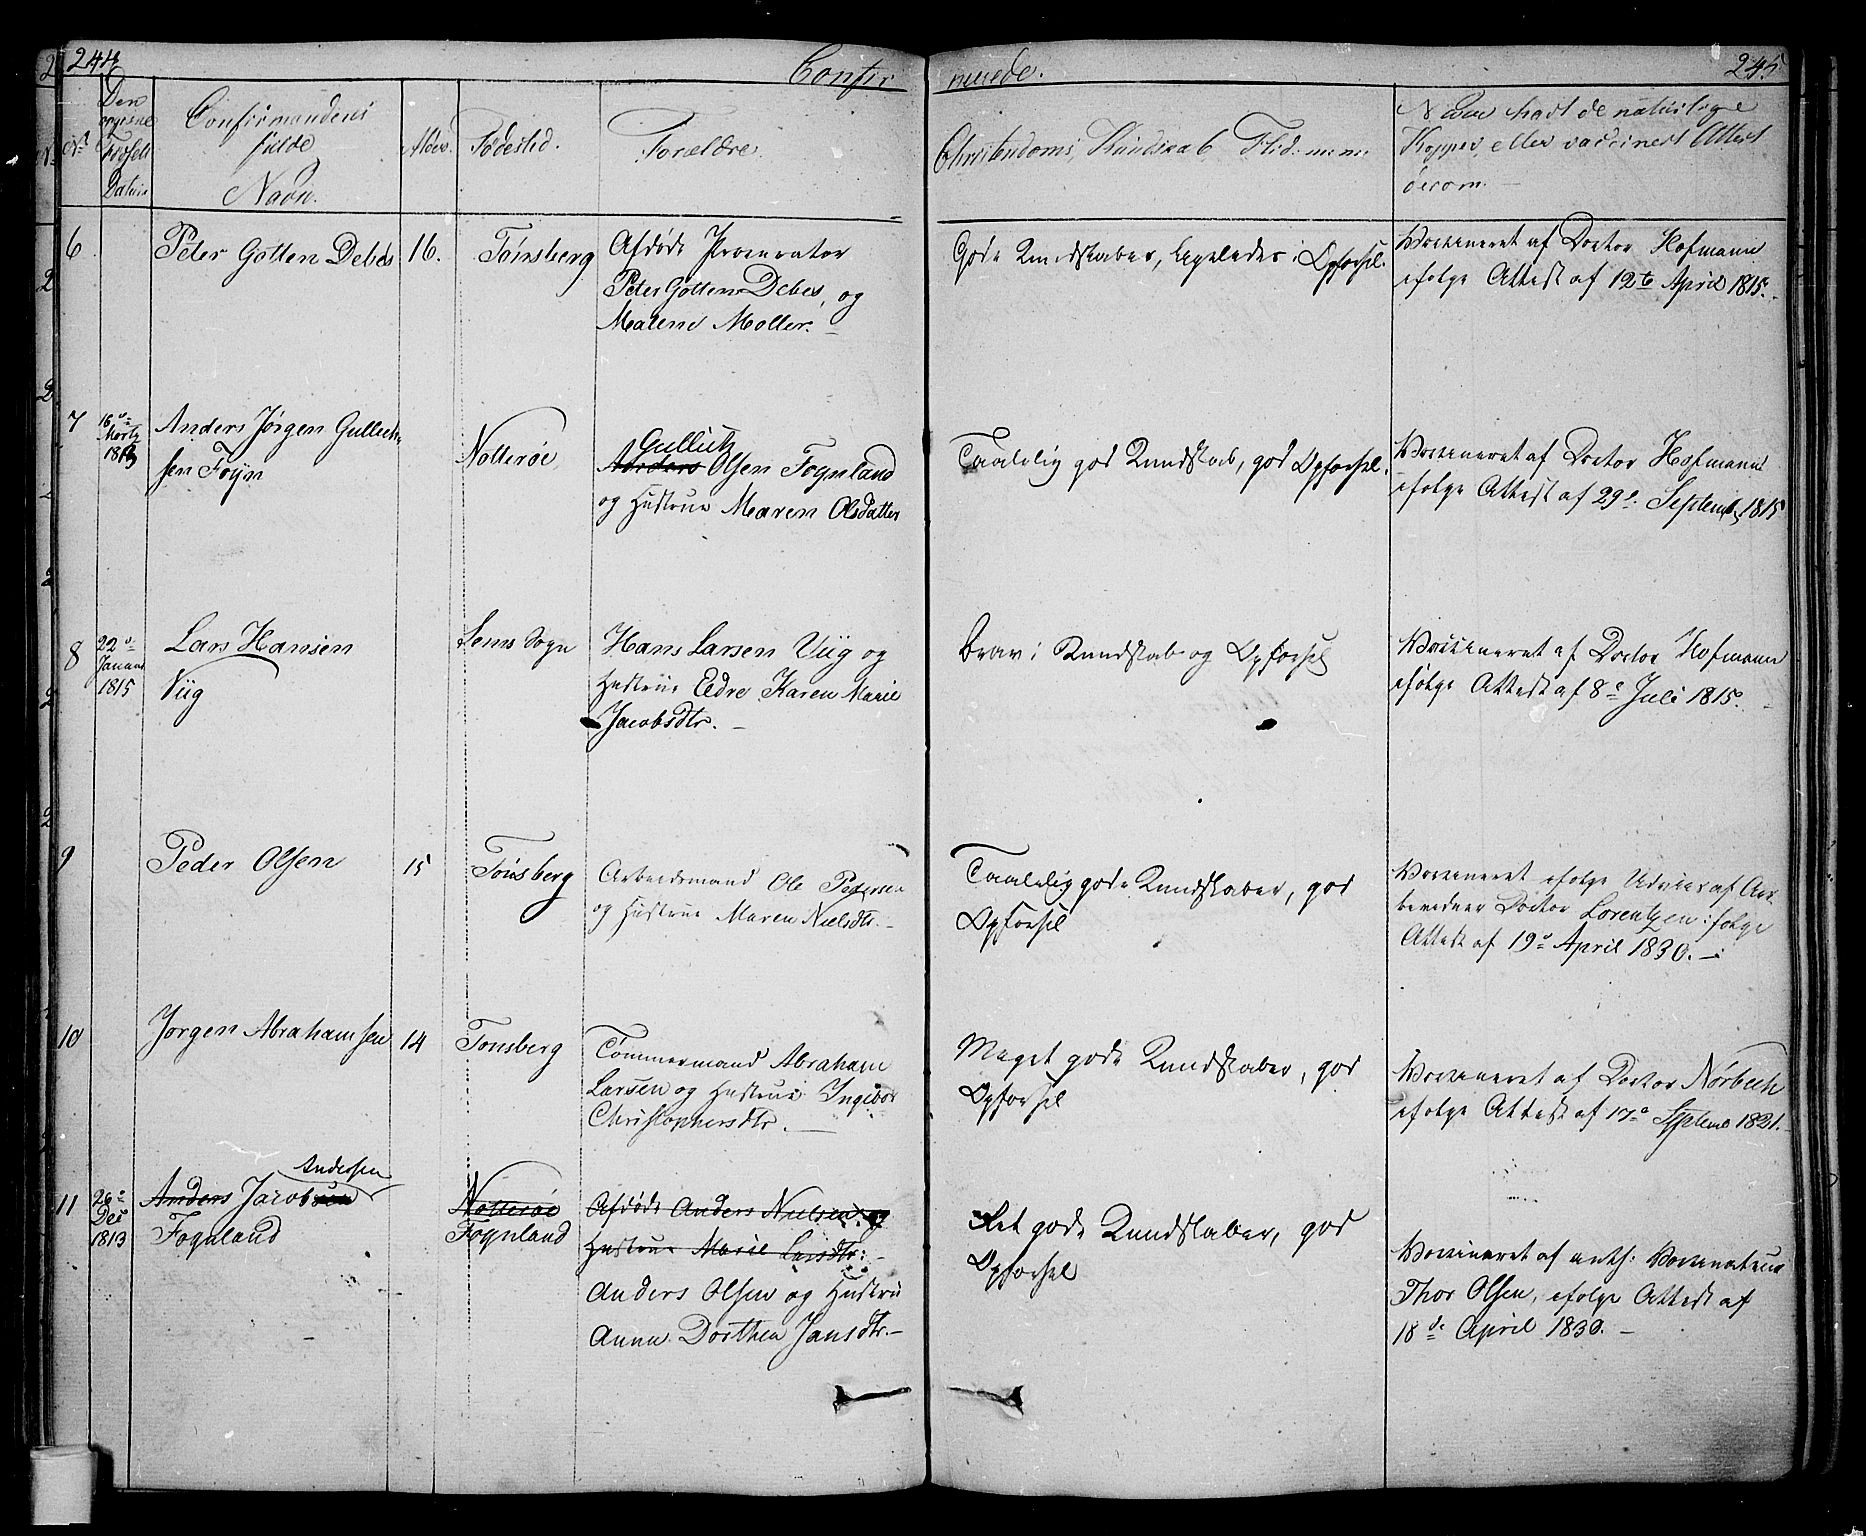 244
Confir
merede.
245
No
Den
Fødsels
Datum
Confirmandens
fulde
Navn.
Alder.
Fødested.
Forældre.
Christendoms, Kundskab, Flid
Naar havt de naturlige
Kopper, eller vaccineret Attest
derom.
6
Peter Gotten Debes
16.
Tönsberg
Afdøde Procurator
Peter Gotten Debes, og
Malene Møller.
Gode Kundskaber, ligeledes i Opførsel.
Vaccineret af Doctor Hofmann
ifølge Attest af 12te April 1815.
7
16de
Marts
1813
Anders Jørgen Gullich
sen Foyn
Nøtterøe
Gullich
Anders Olsen Fognland
og Hustrue Maren Olsdatter
Taalelig god Kundskab, god Opførsel.
Vaccineret af Doctor Hofmann
ifølge Attest af 29de Septemb 1815
8
22de
Januar
1815
Lars Hansen
Viig
Sems Sogn
Hans Larsen Viig og
Hustrue Eldre Karen Marie
Jacobsdtr. -
brav i Kundskab og Opførsel
Vaccineret af Doctor Hofmann
ifølge Attest af 8de Juli 1815.
9
Peder Olsen
15
Tönsberg
Arbeidsmand Ole Pedersen
og Hustrue Maren Nielsdtr. -
Taalelig gode Kundskaber, god
Opførsel
Vaccineret ifølge Udviis af
Doctor Lorentzen ifølge
Attest af 19de April 1830. -
10
Jørgen Abrahamsen
14
Tonsberg
Tömmermand Abraham
Larsen og Hustrue Ingebor
Christophersdtr. -
Meget gode Kundskaber, god
Opførsel
Vaccineret af Doctor Nørbech
ifølge Attest af 17de Septemb 1821.
11
26de
Dec
1813
Andersen
Anders Jacobsen
Fognland
Nøtterøe
Fognland
Afdøde Anders Nielsen og
Hustrue Marie Larsdtr: -
Anders Olsen og Hustru
Anne Dorthea Jansdtr. -
Ret gode Kundskaber, god
Opførsel
Vaccineret af auth: Vaccinateur
Thor Olsen, ifølge Attest af
18de April 1830. -